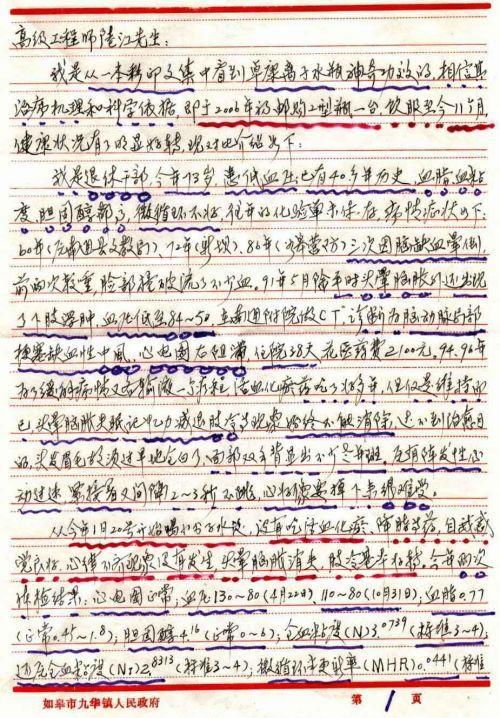 高级工程师陆江先生:
我是从一本翻印文集中看到单架离子水瓶神奇功效的,相信其
治病机理和科学依据,即于2006年初邮购工型瓶一台,饮服至今11个月,
健康状况有了明显好转,现对比介绍如下:
我是退休干部,今年73岁,患低血压已有40多年历史,血脂血粘
度胆固醇都高,微循环不好,往年的化验单未保存,病情症状如下:
60年(在南通县文教局)、72年、86年三次因脑缺血晕倒,
前两次较重,脸部撞破流了不少血,91年5月除平时头晕脑胀外还出现
了个肢浮肿,血压低至84~50,在南通附院做CT,诊断为脑动脉局部
梗塞缺血性中风,心电图右阻滞,住院38天,花医药费2100元,94、96年
为了缓解病情又去输液二个疗程,活血化瘀药吃了好多年,但仅是维持而
已,头晕脑胀失眠记忆力减退肢冷等现象始终不能消除,达不到治愈目
的,头发眉毛胡须过早地全白了,两部双手背显出不少老年斑,尤有阵发性心
动过速,累接着又间隔2~3秒不跳,心好像要掉下来很难受。
从今年1月20号开始喝小分子水后,没有吃活血化瘀、降脂等药,自我感
觉良好,心律不齐现象没有发生,头晕脑胀消失,肢冷基本好转,今年两次
体检结果:心电图正常,血压130~80(4月22日),110~80(10月31日),血脂0.77
(正常0.45~1.8),胆固醇4.16(正常0~6),全血粘度(N)3.0739(标准3~4),
还原全血粘度(NT)2.8313(标准3~4),微循环半更率(MHR)0.0441(标准
如皋市九华镇人民政府 第 1 页